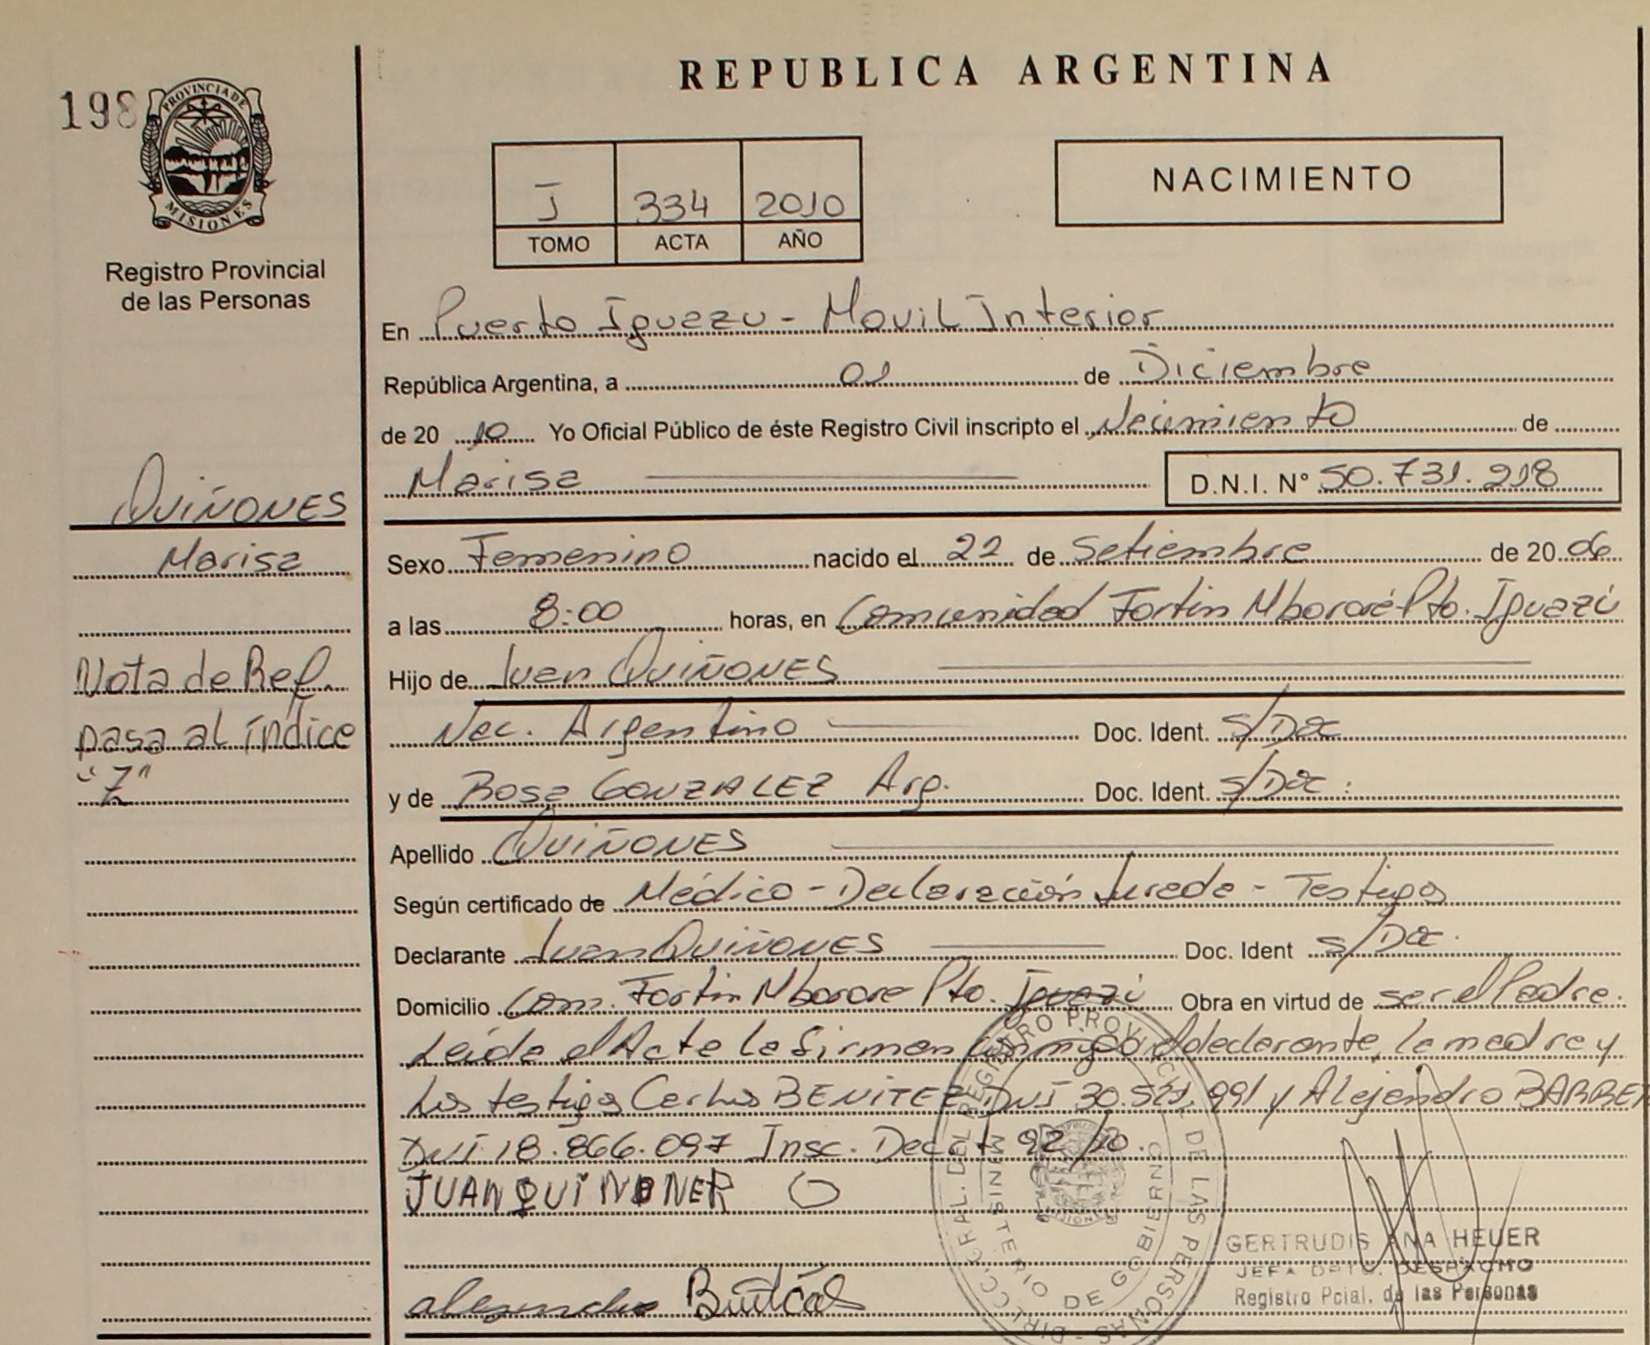 REPUBLICA ARGENTINA
198
PROVINCIA DE
MISIONES
Registro Provincial
de las Personas
J 334 2010
TOMO ACTA AÑO
NACIMIENTO
En Puerto Iguazu - Movil Interior
República Argentina, a 01 de Diciembre
de 20 10 Yo Oficial Público de éste Registro Civil inscripto el Nacimiento de
Marisa D.N.I. N° 50.731.218
QUIÑONES
Marisa
Nota de Ref.
pasa al índice
"Z"
Sexo Femenino nacido el 22 de Setiembre de 20 06
a las 8:00 horas, en Comunidad Fortin Mbororé Pto. Iguazú
Hijo de Juan QUIÑONES
Nac. Argentino Doc. Ident. S/Doc
y de Rosa GONZALEZ Arg. Doc. Ident. S/Doc.
Apellido QUIÑONES
Según certificado de Médico - Declaración Jurada - Testigos
Declarante Juan QUIÑONES Doc. Ident S/Doc.
Domicilio Com. Fortin Mborore Pto. Iguazú Obra en virtud de ser el Padre.
Leída el Acta la firman conmigo el declarante, la madre y
los testigos Carlos BENITEZ DNI 30.521.991 y Alejandro
DNI 18.866.097 Insc. 92/10.
JUAN QUINONER
GERTRUDIS ANA HEUER
JEFA DPTO. DESPACHO
Registro Pcial. de las Personas
DIRECC. GRAL. DEL REGISTRO PROVINCIAL DE LAS PERSONAS
MINISTERIO DE GOBIERNO